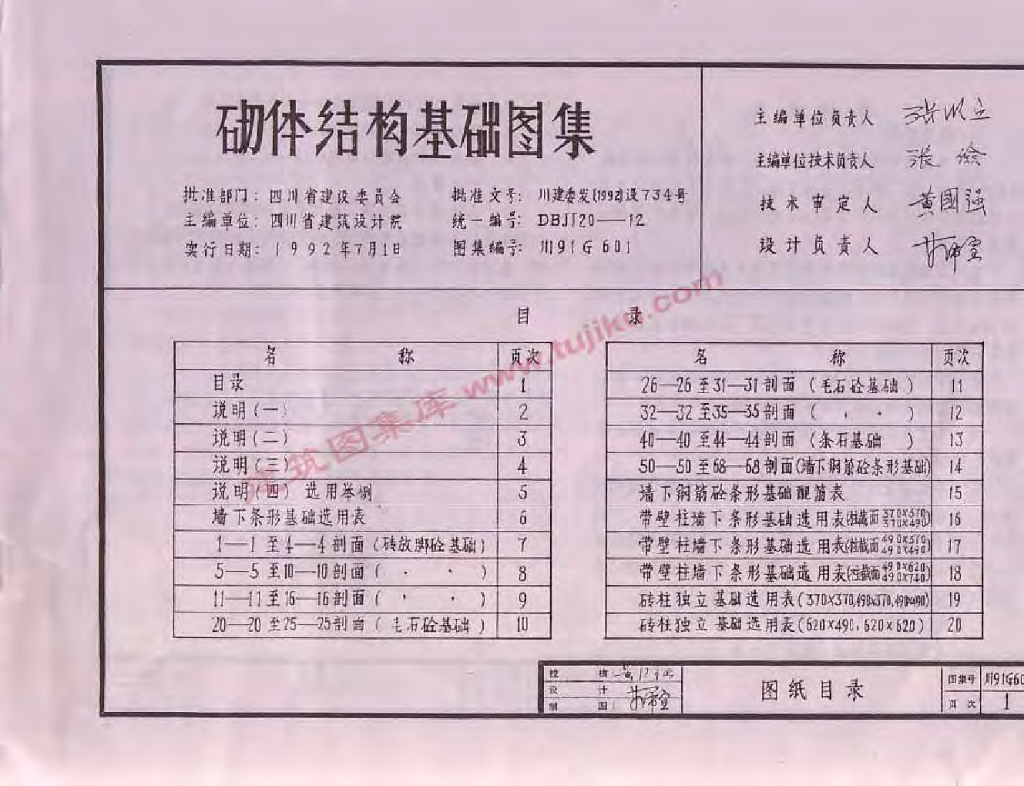 砌体结构基础图集
批准部门：四川省建设委员会
批准文号：川建委发(1992)设734号
主编单位：四川省建筑设计院
统一编号：DBJT20——12
实行日期：1992年7月1日
图集编号：川91G601
主编单位负责人
主编单位技术负责人
技术审定人 黄国强
设计负责人
目 录
名 称 页次
目录 1
说明(一) 2
说明(二) 3
说明(三) 4
说明(四) 选用举例 5
墙下条形基础选用表 6
1—1至4—4剖面(砖放脚砼基础) 7
5—5至10—10剖面( · · ) 8
11—11至16—16剖面( · · ) 9
20—20至25—25剖面(毛石砼基础) 10
名 称 页次
26—26至31—31剖面(毛石砼基础) 11
32—32至35—35剖面( · · ) 12
40—40至44—44剖面(条石基础 ) 13
50—50至68—68剖面(墙下钢筋砼条形基础) 14
墙下钢筋砼条形基础配筋表 15
带壁柱墙下条形基础选用表(柱截面370×370 370×490) 16
带壁柱墙下条形基础选用表(柱截面490×370 490×490) 17
带壁柱墙下条形基础选用表(柱截面490×620 490×740) 18
砖柱独立基础选用表(370×370,490×370,490×490) 19
砖柱独立基础选用表(620×490,620×620) 20
建筑图集库 www.tujiku.com
校 核
设 计
制 图
图纸目录
图集号 川91G60
页次 1